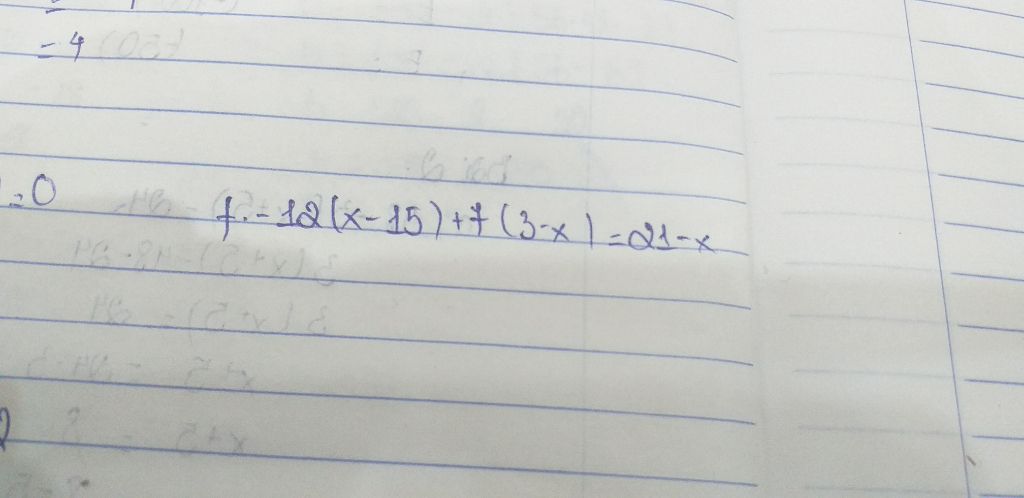 = 4
= 0
f. -12(x-15)+7(3-x)=21-x